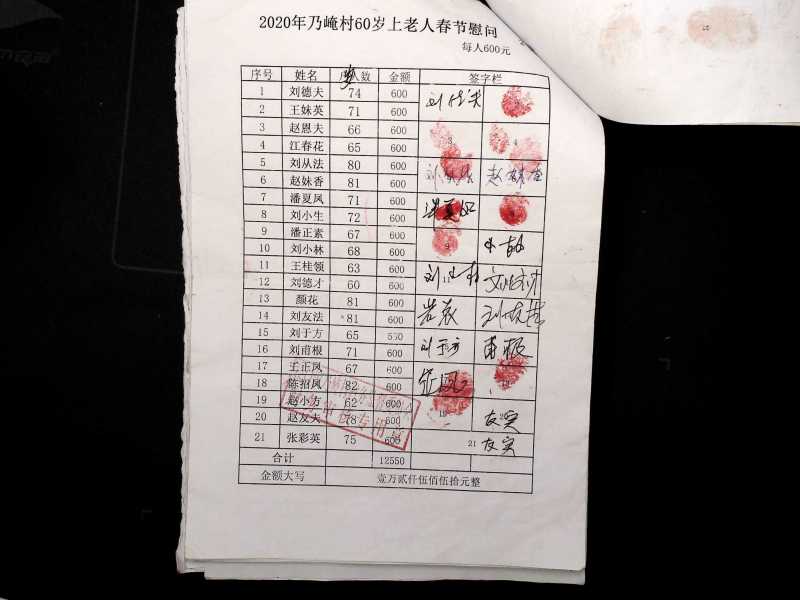 2020年乃崦村60岁上老人春节慰问
每人600元
序号 姓名 岁人数 金额 签字栏
1 刘德夫 74 600
2 王妹英 71 600
3 赵恩夫 66 600 3
4 江春花 65 600 4
5 刘从法 80 600
6 赵妹香 81 600 赵妹香
7 潘夏凤 71 600
8 刘小生 72 600
9 潘正素 67 600 9
10 刘小林 68 600
11 王桂领 63 600
12 刘德才 60 600
13 颜花 81 600
14 刘友法 81 600 刘友法
15 刘于方 65 550 刘于方
16 刘甫根 71 600 甫根
17 王正凤 67 600
18 陈招凤 82 600
19 赵小方 62 600
20 赵友夫 78 600 友实
21 张彩英 75 600 21 友实
合计 12550
金额大写 壹万贰仟伍佰伍拾元整